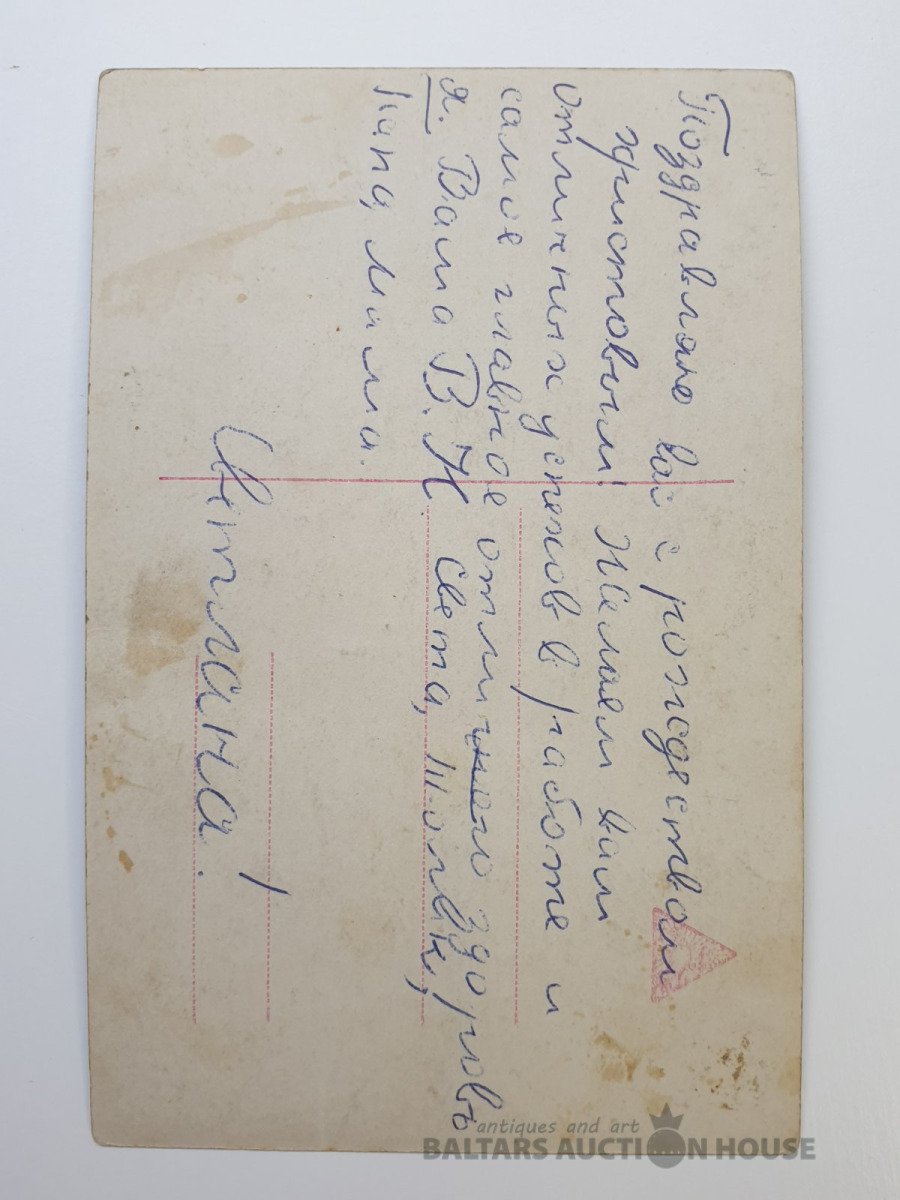 Поздравляю вас с рождеством
христовым! Желаем вам
отличных успехов в работе и
самое главное отличного здоровь
я. Ваша В. Н. Света, Толик,
папа, мама.
Светлана!
antiques and art
BALTARS AUCTION HOUSE